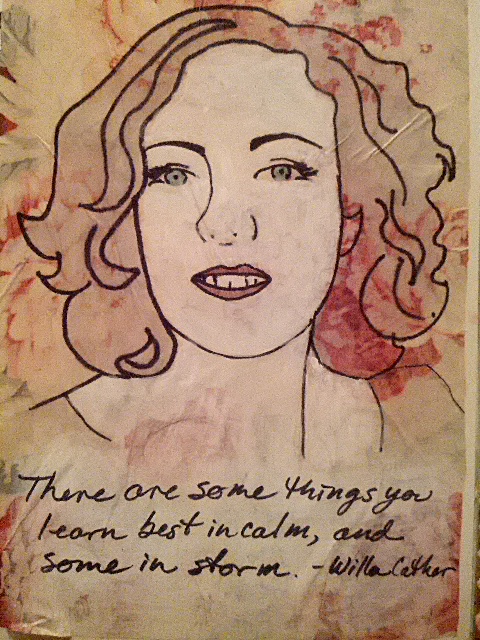 There are some things you
learn best in calm, and
some in storm. - Willa Cather